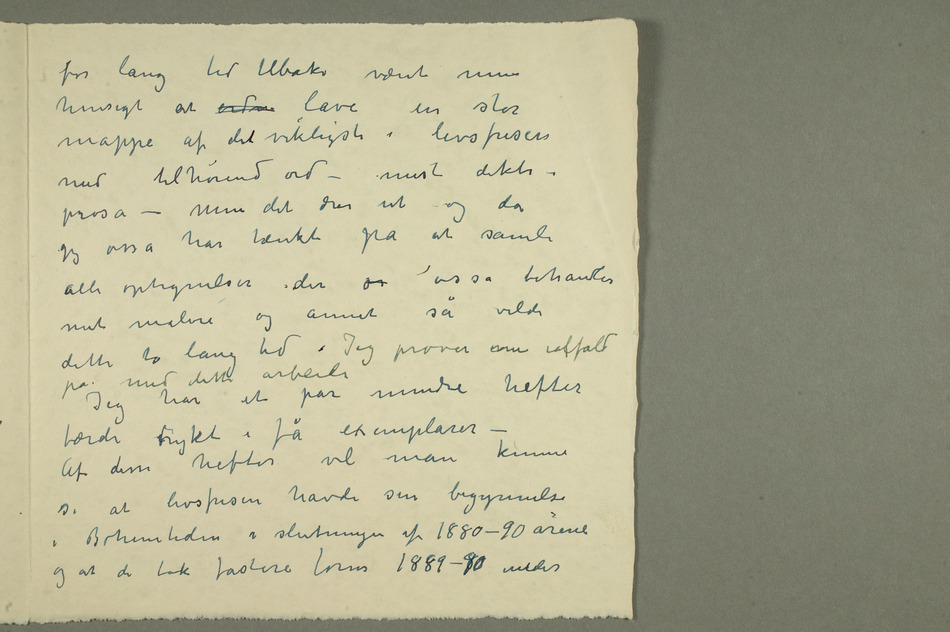 for lang tid tilbake været min
hensigt at ordne lave en stor
mappe af det viktigste i livsfrisen
med tilhørend ord – mest dikte i
prosa – men det drar ut og da
jeg ossa har tænkt pa at samle
alle optegnelser der ossa behandler
mit maleri og annet så vilde
dette ta lang tid. Jeg prøver ialfald
pa med dette arbeide
Jeg har et par mindre hefter
færdi trykt i få exemplarer –
Af disse hefter vil man kunne
se at livsfrisen havde sin begynnelse
i Bohemtiden i slutningen af 1880–90 årene
og at de tok fastere form 1889–90 under